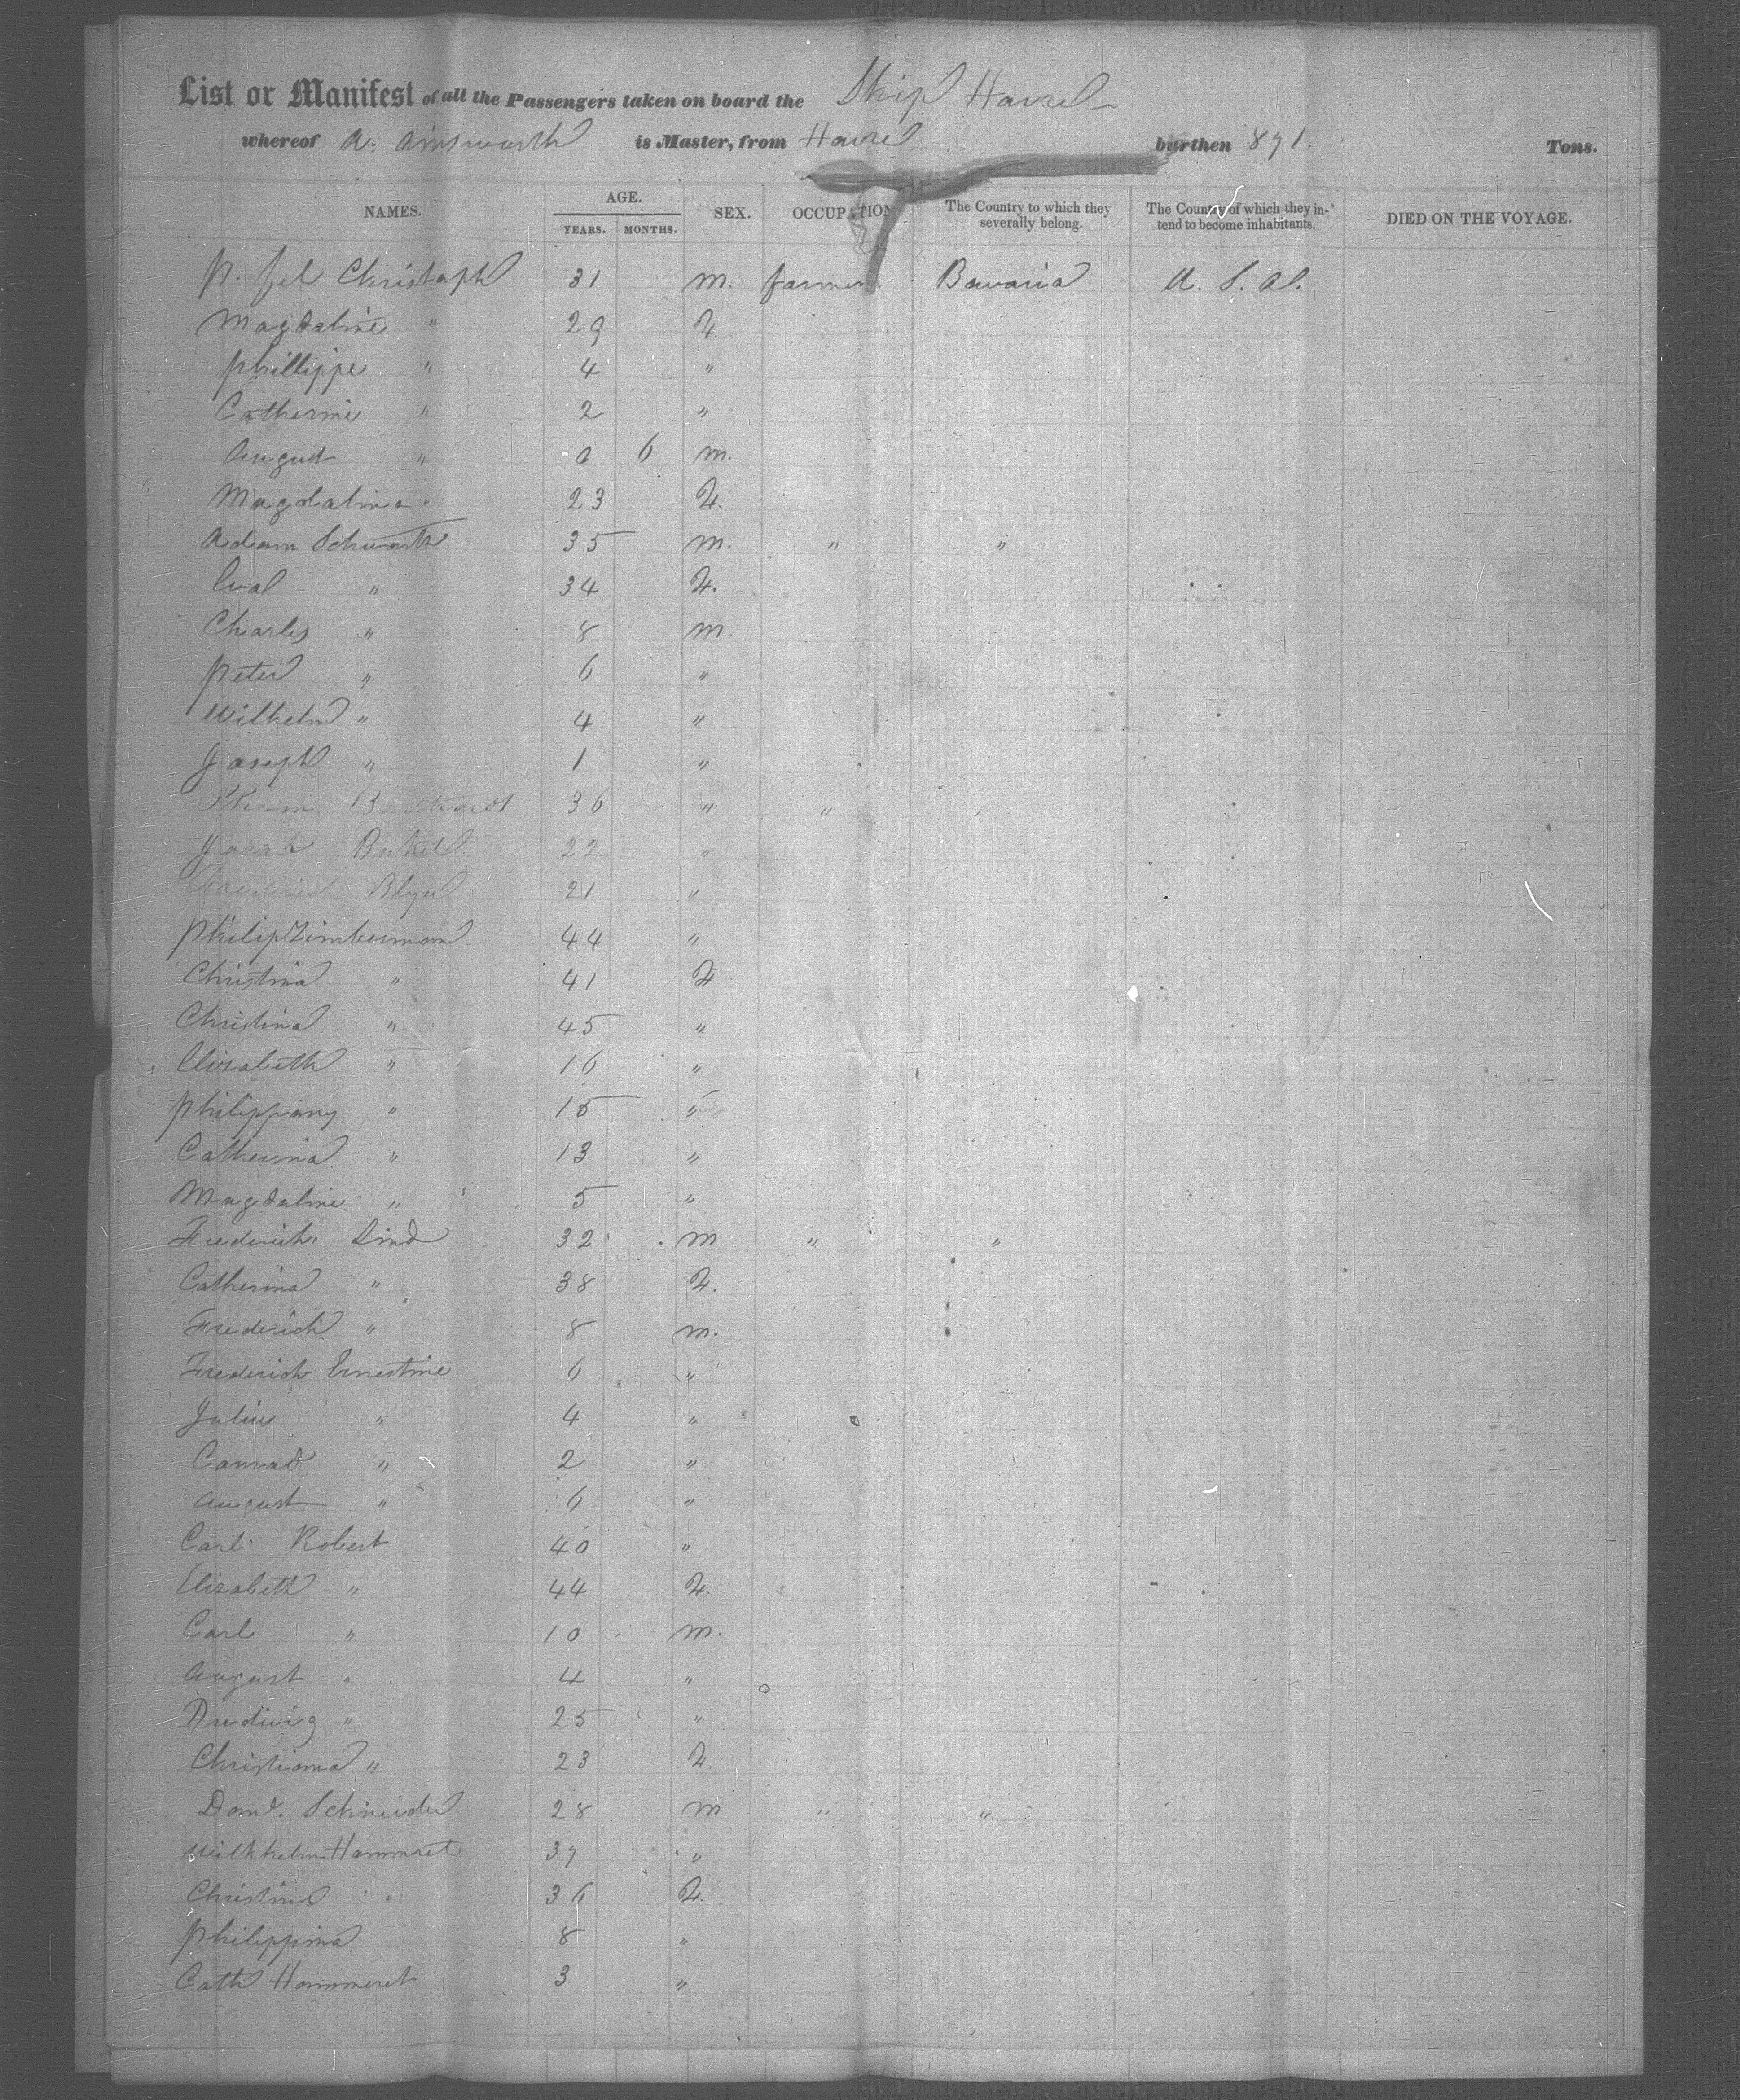 List or Manifest of all the Passengers taken on board the Ship Havre
whereof A. Ainsworth is Master, from Havre burthen 871. Tons.
NAMES. AGE. YEARS. MONTHS. SEX. OCCUPATION The Country to which they severally belong. The Country of which they intend to become inhabitants. DIED ON THE VOYAGE.
Christoph 31 M. farmer Bavaria U. S. A.
Magdaline " 29 F.
Phillippe " 4 "
Catherine " 2 "
August " 0 6 M.
Magdalina 23 F.
Adam Schwartz 35 M. " "
Eva " 34 F.
Charles " 8 M.
Peter " 6 "
Wilhelm " 4 "
Joseph " 1 "
36 " "
Jacob 22 "
21 "
Philip Zimberman 44 "
Christina " 41 F
Christina " 45 "
Elizabeth " 16 "
Philippiny " 15 "
Catherina " 13 "
Magdaline " 5 "
Frederick Lind 32 M " "
Catherina " 38 F.
Frederick " 8 M.
Frederick Ernestine 6 "
Julius " 4 "
Conrad " 2 "
August " 6 "
Carl Robert 40 "
Elizabeth " 44 F.
Carl " 10 M.
August " 4 "
" 25 "
Christiana " 23 F
Schneider 28 M " "
Wilkhelm Hammret 37 "
Christina " 36 F.
Philippina 8 "
Cath Hammeret 3 "